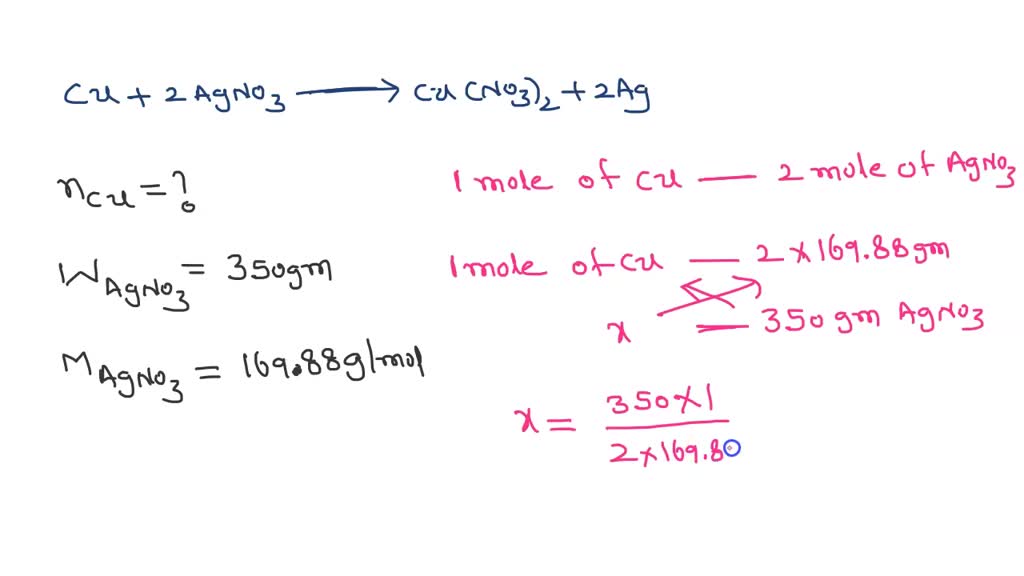 Cu + 2 AgNO3 → Cu(NO3)2 + 2Ag
nCu = ?
WAgNO3 = 350gm
MAgNO3 = 169.88g/mol
1 mole of Cu — 2 mole of AgNO3
1 mole of Cu — 2 × 169.88gm
x = 350 gm AgNO3
x = 350 × 1
2 × 169.8